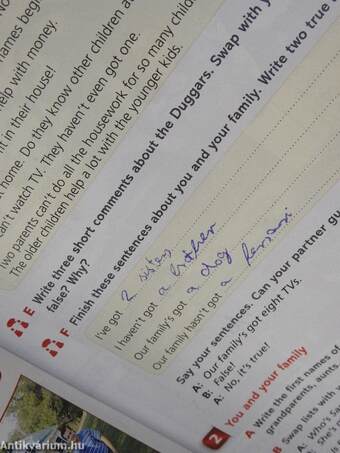 names begi
help with money.
it in their house!
home. Do they know other children a
can't watch TV. They haven't even got one.
Two parents can't do all the housework for so many child
The older children help a lot with the younger kids.
E Write three short comments about the Duggars. Swap with y
false? Why?
F Finish these sentences about you and your family. Write two true
I've got 2 sisters
I haven't got a brother
Our family's got a dog
Our family hasn't got a
Say your sentences. Can your partner gu
A: Our family's got eight TVs.
B: False!
A: No, it's true!
2 You and your family
A Write the first names of
grandparents, aunts
B Swap lists with
A: Who's Sa
B: She's m
Antikvarium.hu
Antikvarium.hu